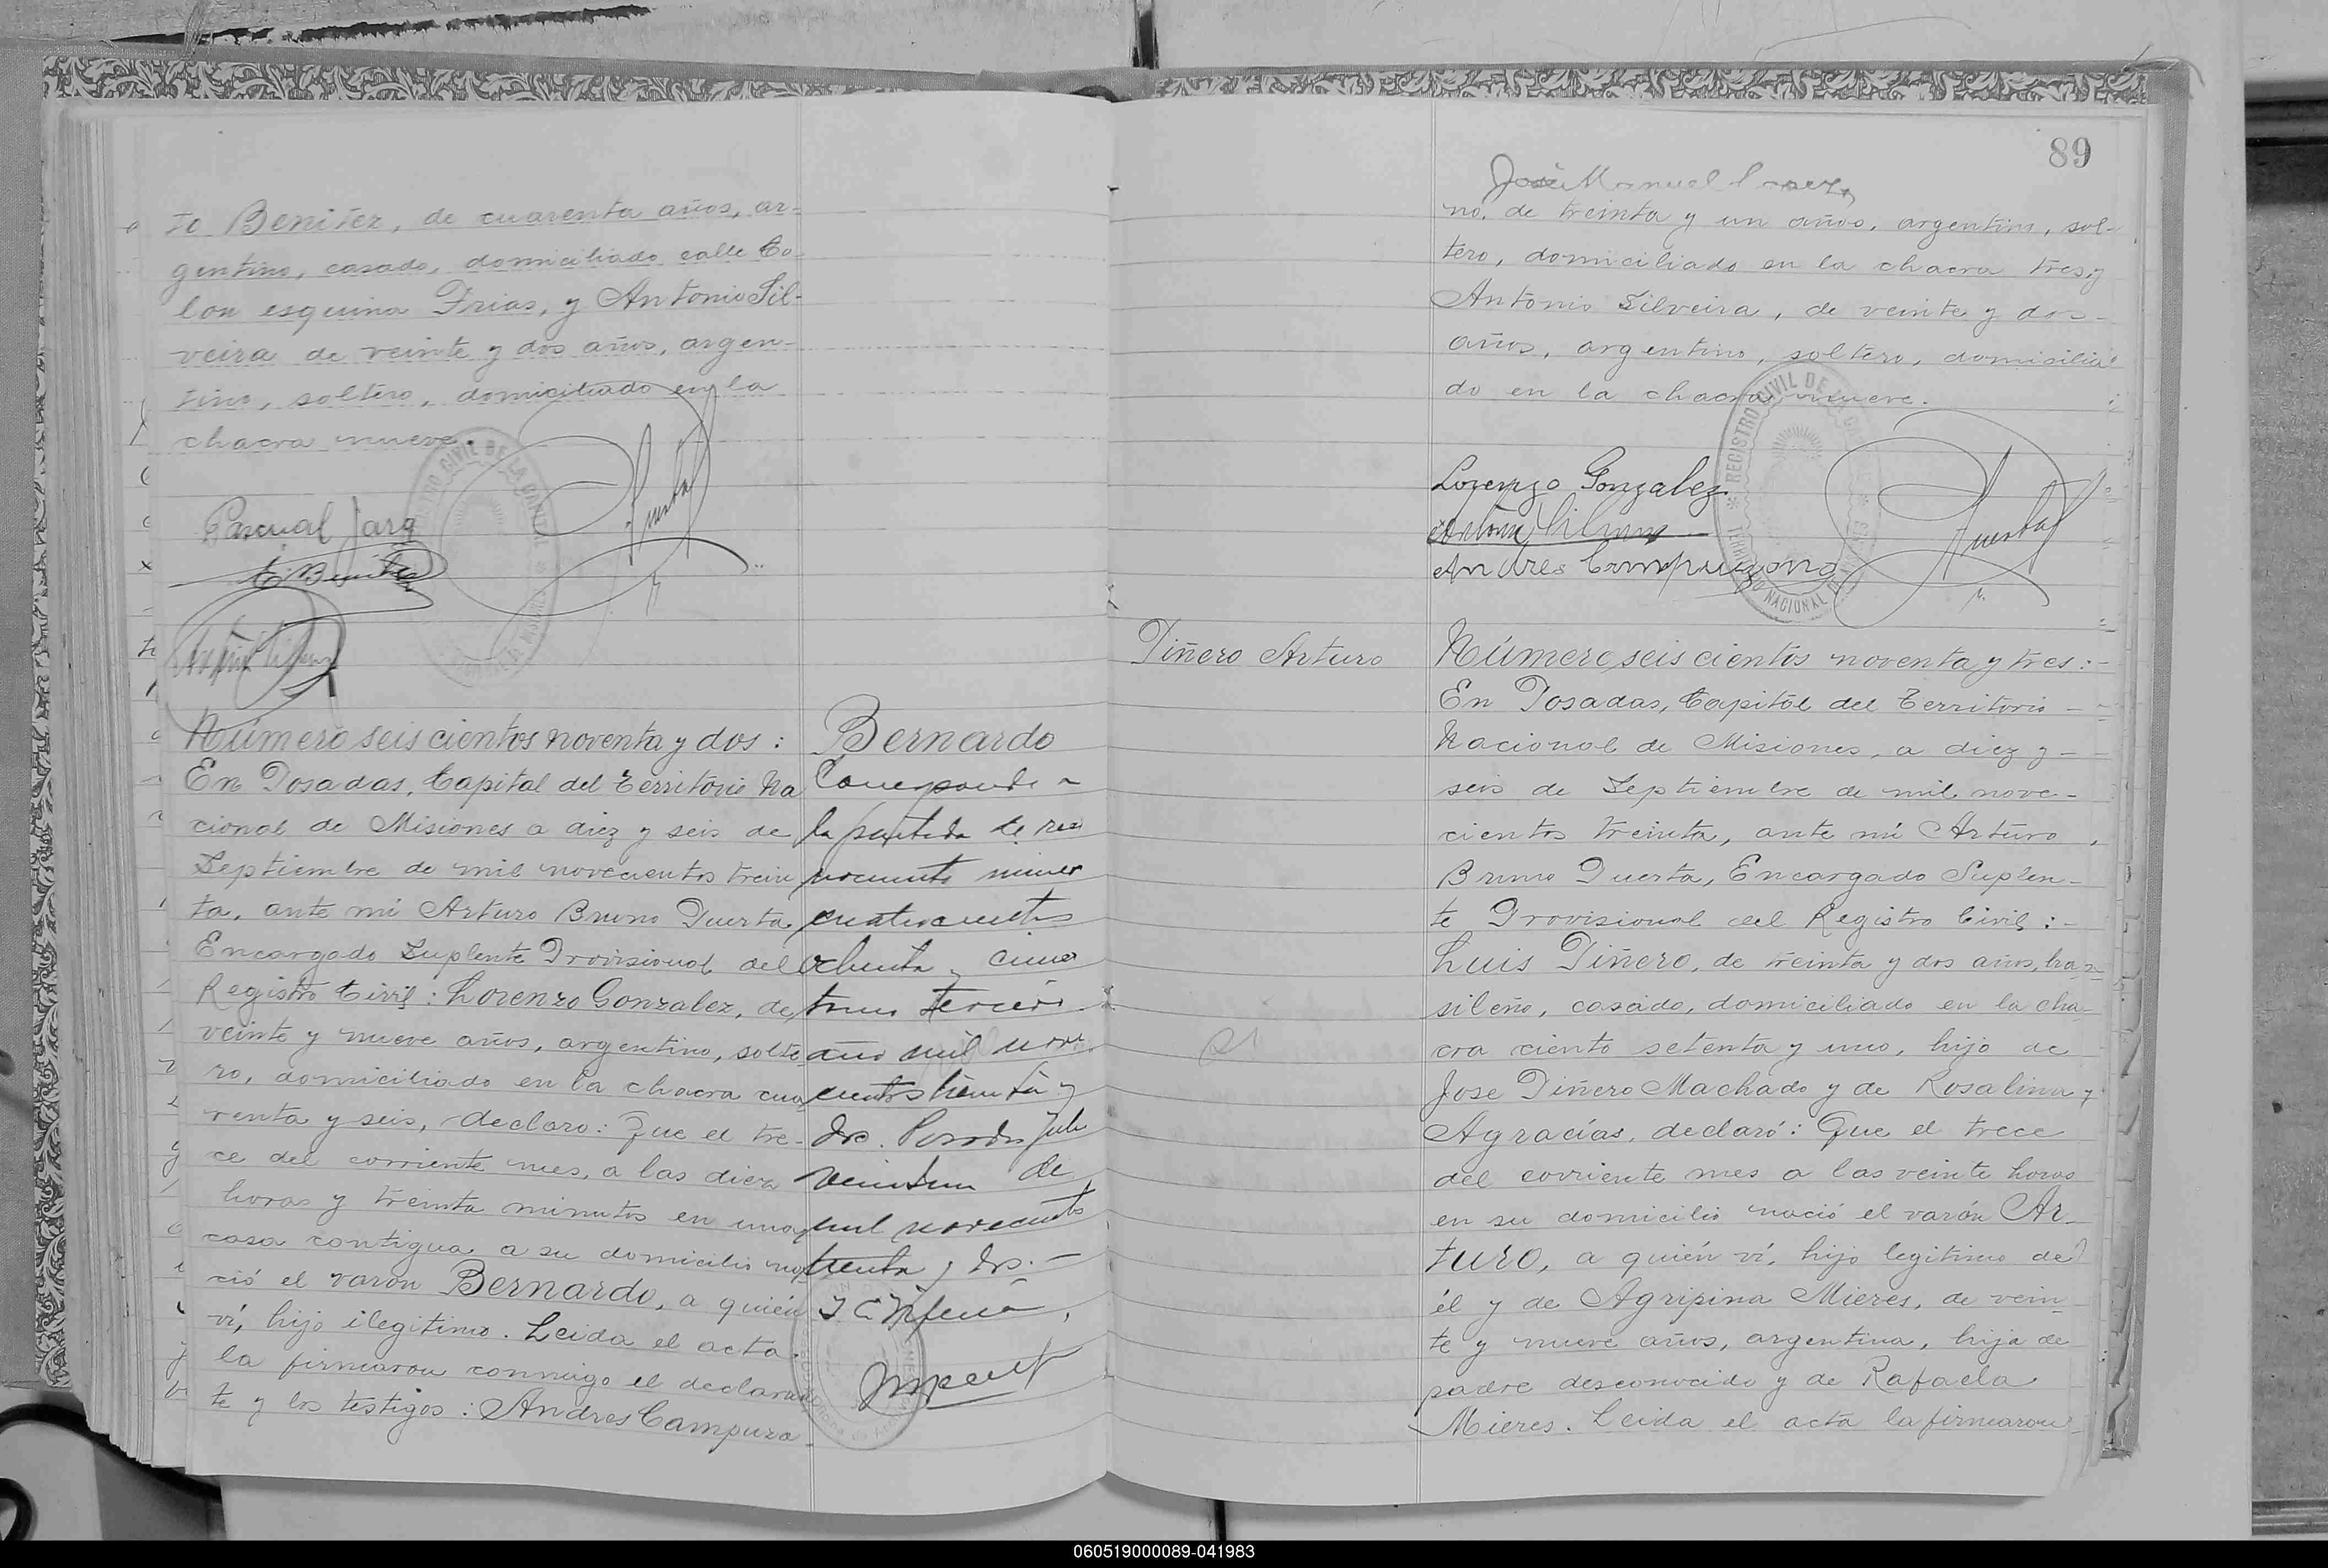 to Benitez, de cuarenta años, ar-
gentino, casado, domiciliado calle Co-
lon esquina Frias, y Antonio Sil-
veira de veinte y dos años, argen-
tino, soltero, domiciliado en la
chacra nueve.
REGISTRO CIVIL DE LA CAPITAL
Pascual Jara
E. Benitez
Número seiscientos noventa y dos:
En Posadas, Capital del Territorio Na
cional de Misiones a diez y seis de
Septiembre de mil novecientos trein
ta, ante mi Arturo Bruno Puerta,
Encargado Suplente Provisional del
Registro Civil: Lorenzo Gonzalez, de
veinte y nueve años, argentino, solte
ro, domiciliado en la chacra cua
renta y seis, declaro: Que el tre-
ce del corriente mes, a las diez
horas y treinta minutos en una
casa contigua a su domicilio na
ció el varon Bernardo, a quién
ví, hijo ilegitimo. Leida el acta
la firmaron conmigo el declaran
te y los testigos: Andres Campuza
Bernardo
Corresponde a
la partida de reco
nocimiento número
cuatrocientos
ochenta y cinco
tomo tercero
año mil nove
cientos treinta y
dos. Posadas Julio
veintiuno de
mil novecientos
treinta y dos.-
89
no, de treinta y un años, argentino, sol-
tero, domiciliado en la chacra tres y
Antonio Silveira, de veinte y dos-
años, argentino, soltero, domisilia
do en la chacra nueve.
REGISTRO CIVIL DE LA
TERRITORIO NACIONAL DE MISIONES
Lorenzo Gonzalez
Andres Campuzano
Piñero Arturo
Número seiscientos noventa y tres:-
En Posadas, Capital del Territorio -
Nacional de Misiones, a diez y -
seis de Septiembre de mil nove-
cientos treinta, ante mi Arturo
Bruno Puerta, Encargado Suplen-
te Provisional del Registro Civil:-
Luis Piñero, de treinta y dos años, bra-
sileño, casado, domiciliado en la cha-
cra ciento setenta y uno, hijo de
Jose Piñero Machado y de Rosalina
Agracías, declaró: Que el trece
del corriente mes a las veinte horas
en su domicilio nació el varón Ar-
turo, a quién ví, hijo legitimo de
él y de Agripina Mieres, de vein-
te y nueve años, argentina, hija de
padre desconocido y de Rafaela
Mieres. Leida el acta la firmaron
060519000089-041983